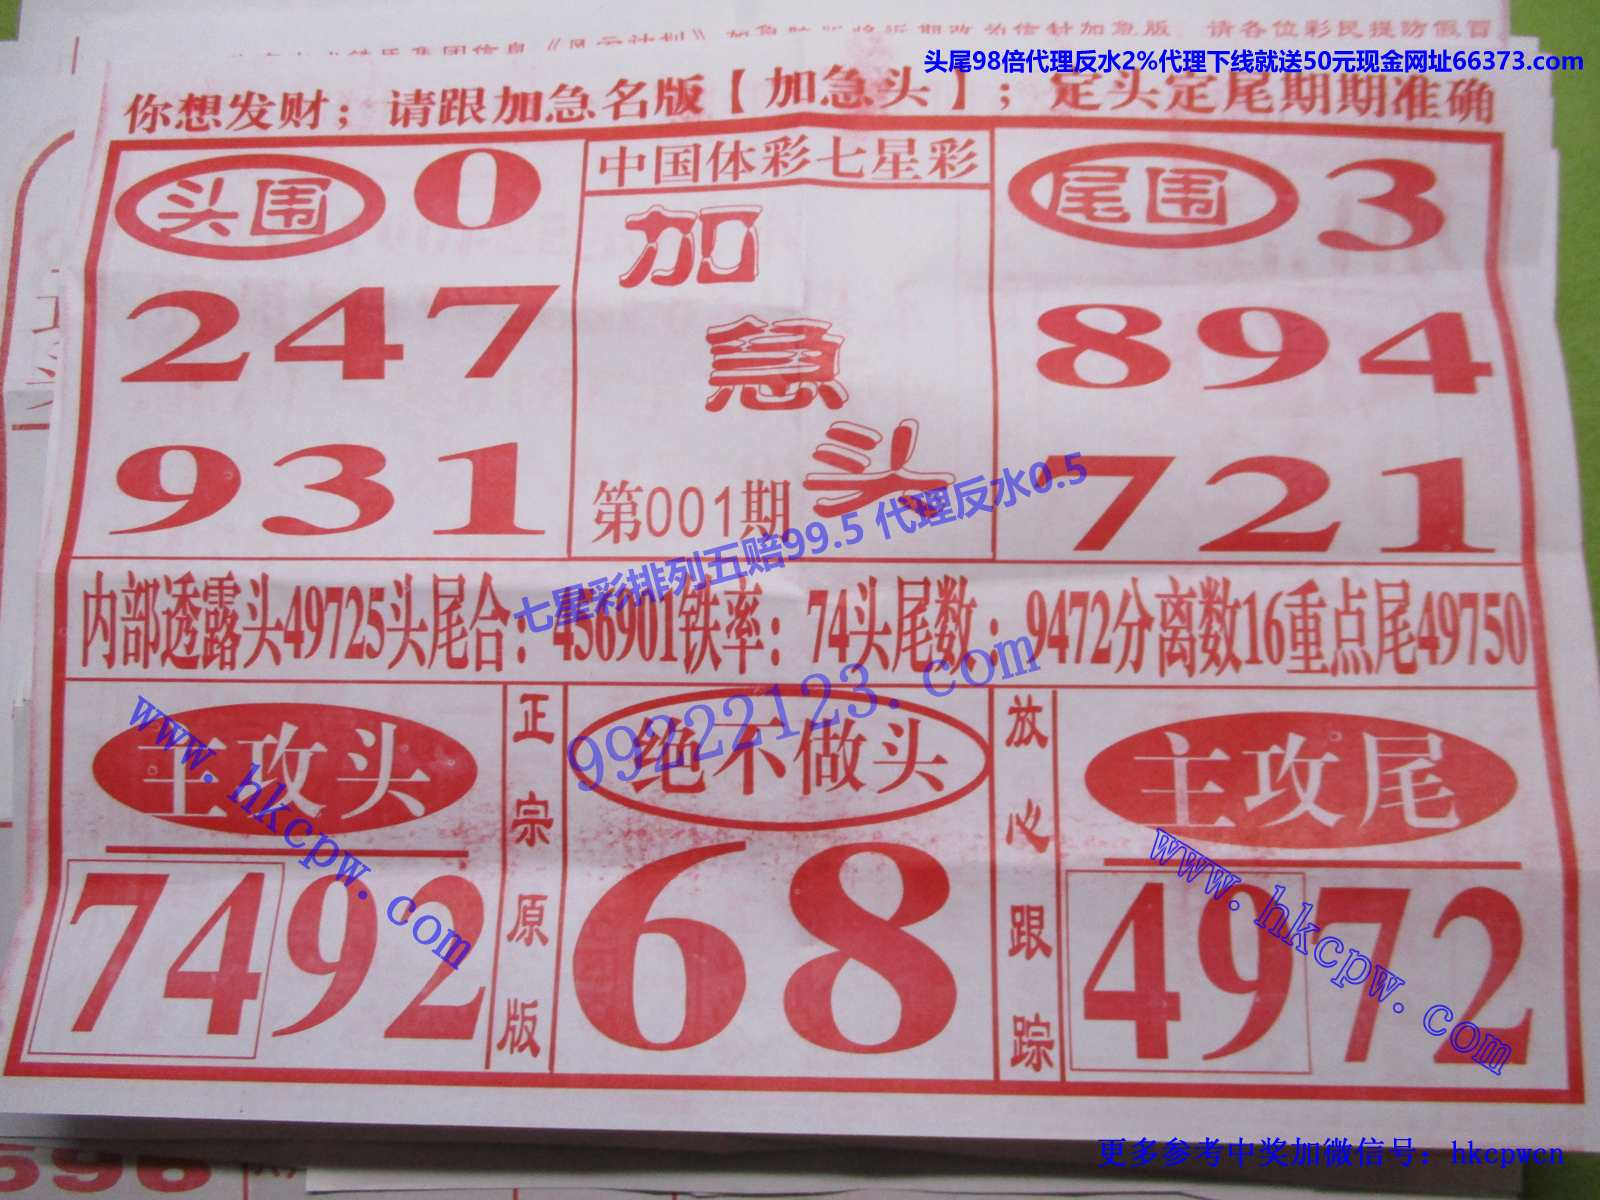 加急版 将近期改为信针加急版 请各位彩民提防假冒
头尾98倍代理反水2%代理下线就送50元现金网址66373.com
你想发财；请跟加急名版【加急头】；定头定尾期期准确
头围 0
247
931
中国体彩七星彩
加
急
头
第001期
尾围 3
894
721
七星彩排列五赔99.5 代理反水0.5
内部透露头49725头尾合：456901铁率：74头尾数：9472分离数16重点尾49750
99222123.com
主攻头
7492
www.hkcpw.com
正宗原版
绝不做头
68
放心跟踪
主攻尾
4972
www.hkcpw.com
更多参考中奖加微信号：hkcpwcn
596